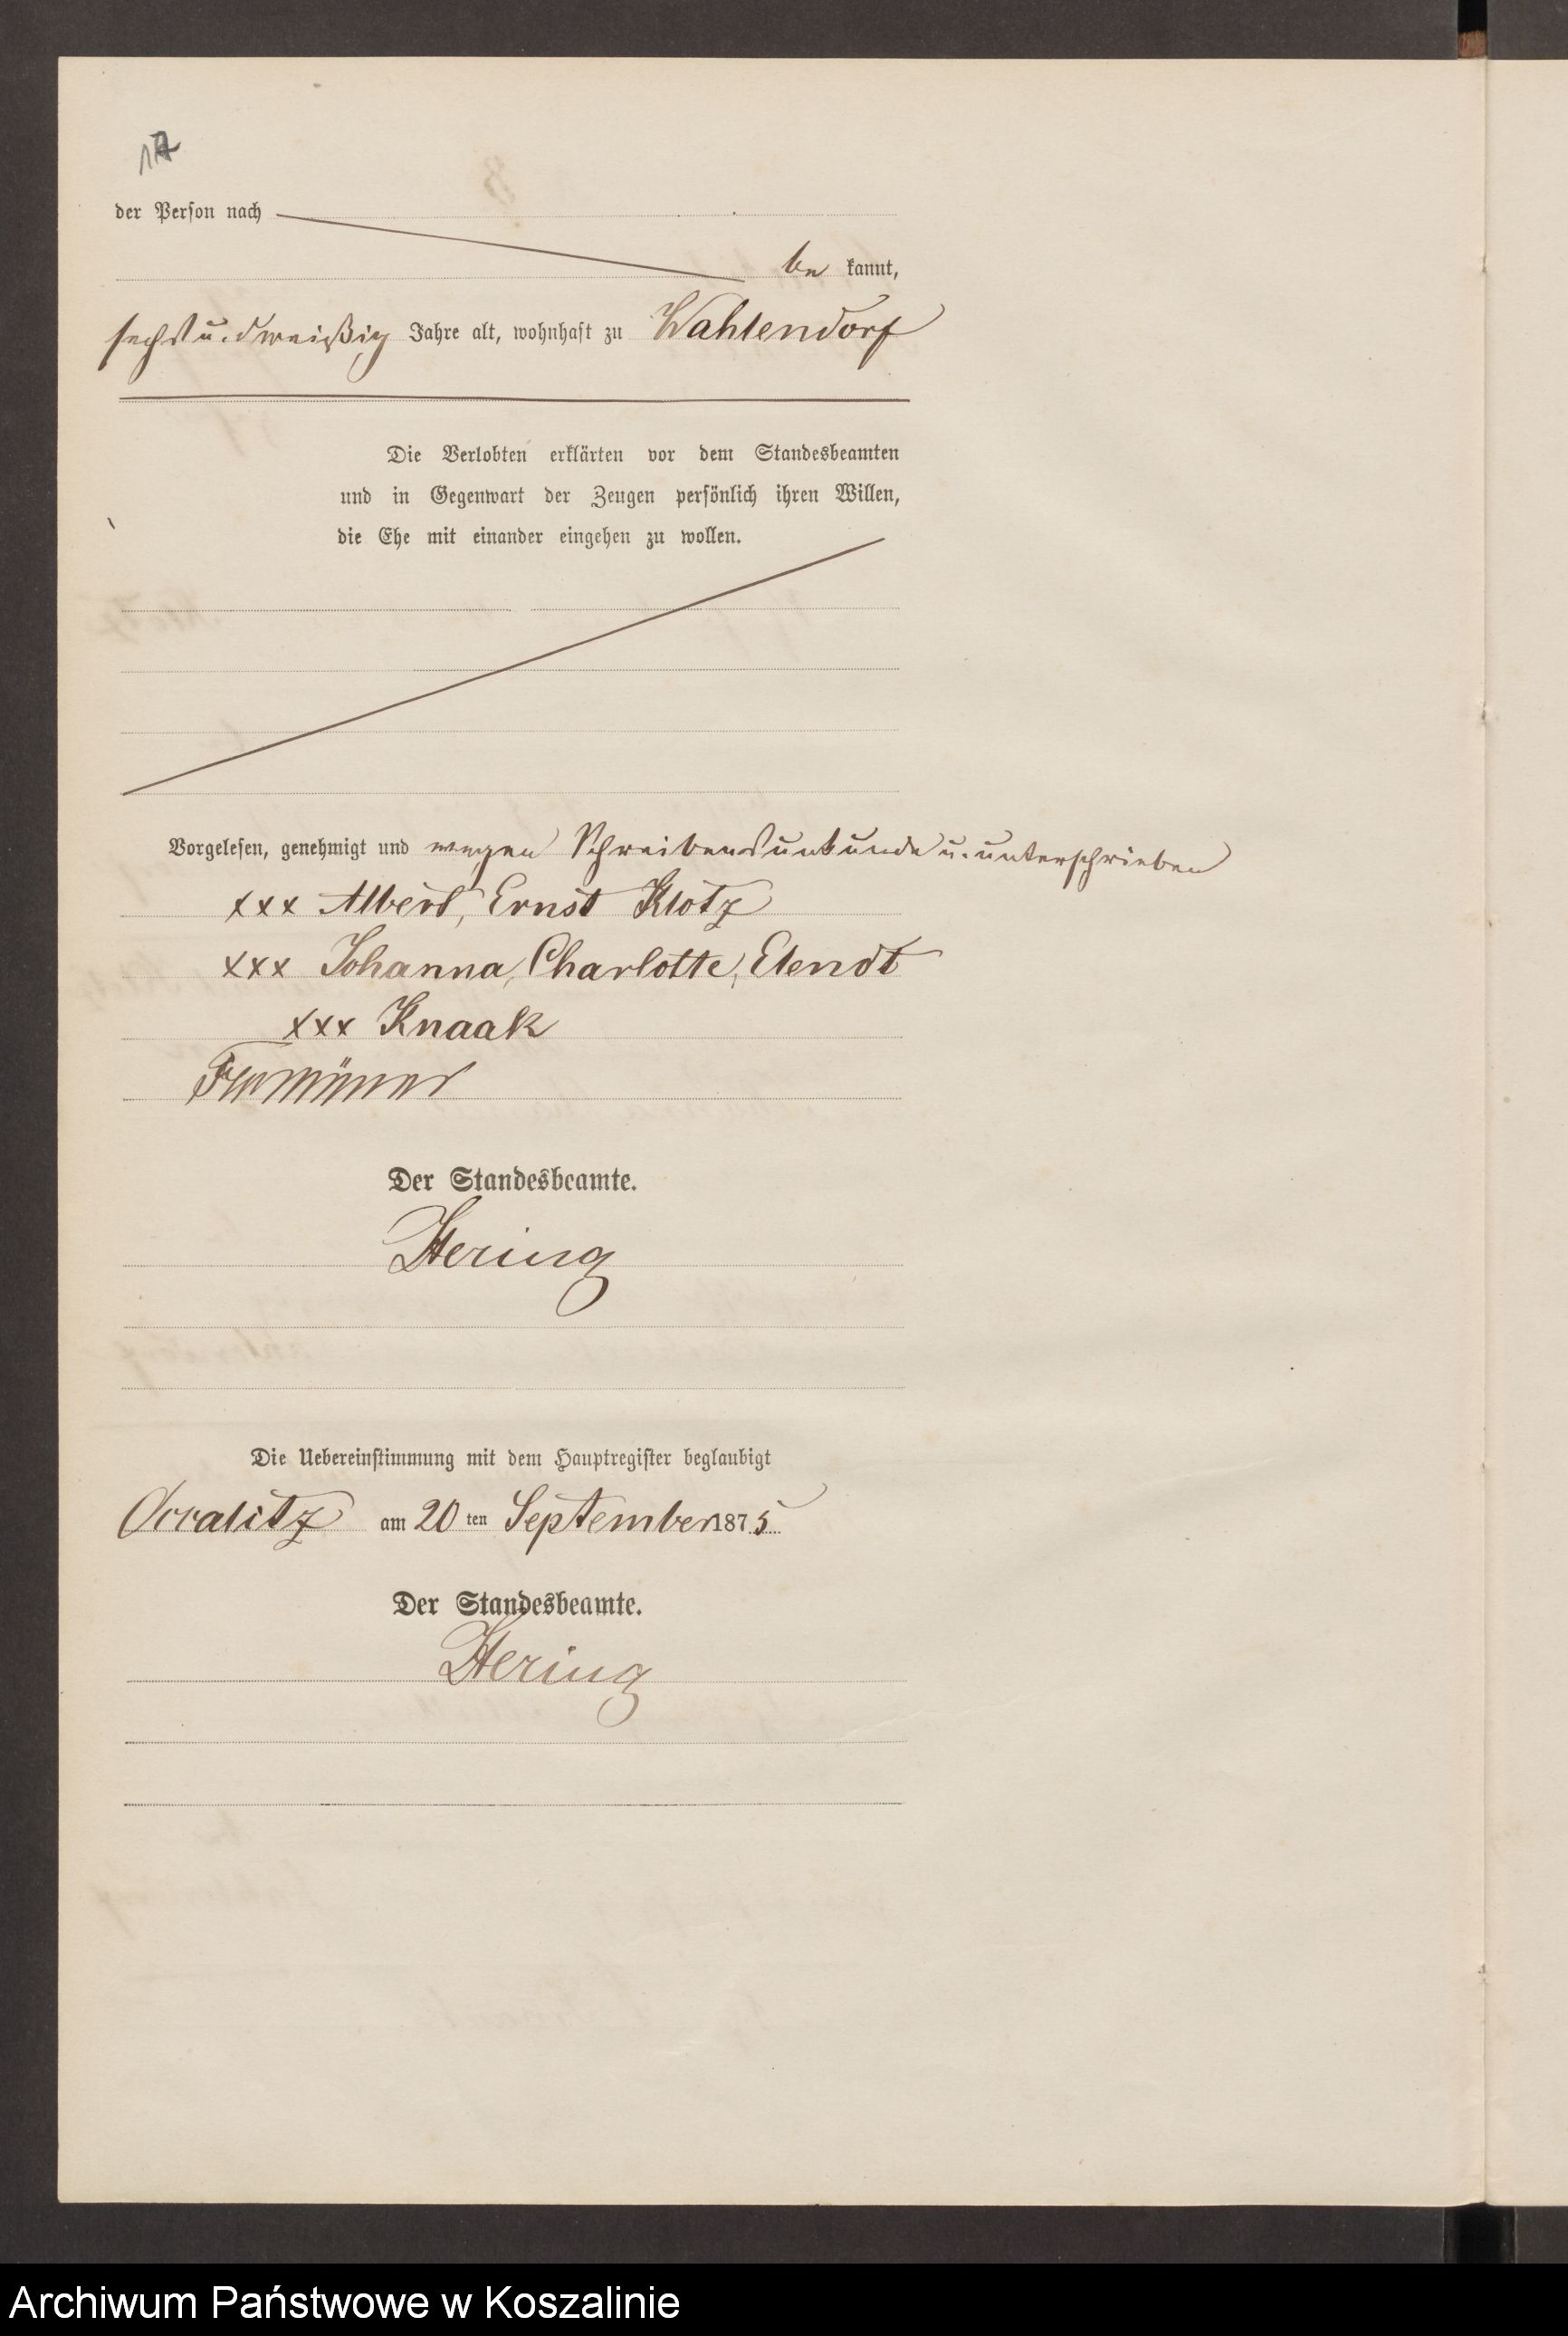 17
der Person nach
be kannt,
sechs u. dreißig Jahre alt, wohnhaft zu Wahlendorf
Die Verlobten erklärten vor dem Standesbeamten
und in Gegenwart der Zeugen persönlich ihren Willen,
die Ehe mit einander eingehen zu wollen.
Vorgelesen, genehmigt und wegen Schreibensunkunde u. unterschrieben
xxx Albert, Ernst Klotz
xxx Johanna, Charlotte, Elendt
xxx Knaak
Der Standesbeamte.
Hering
Die Uebereinstimmung mit dem Hauptregister beglaubigt
Occalitz am 20 ten September 1875
Der Standesbeamte.
Hering
Archiwum Państwowe w Koszalinie